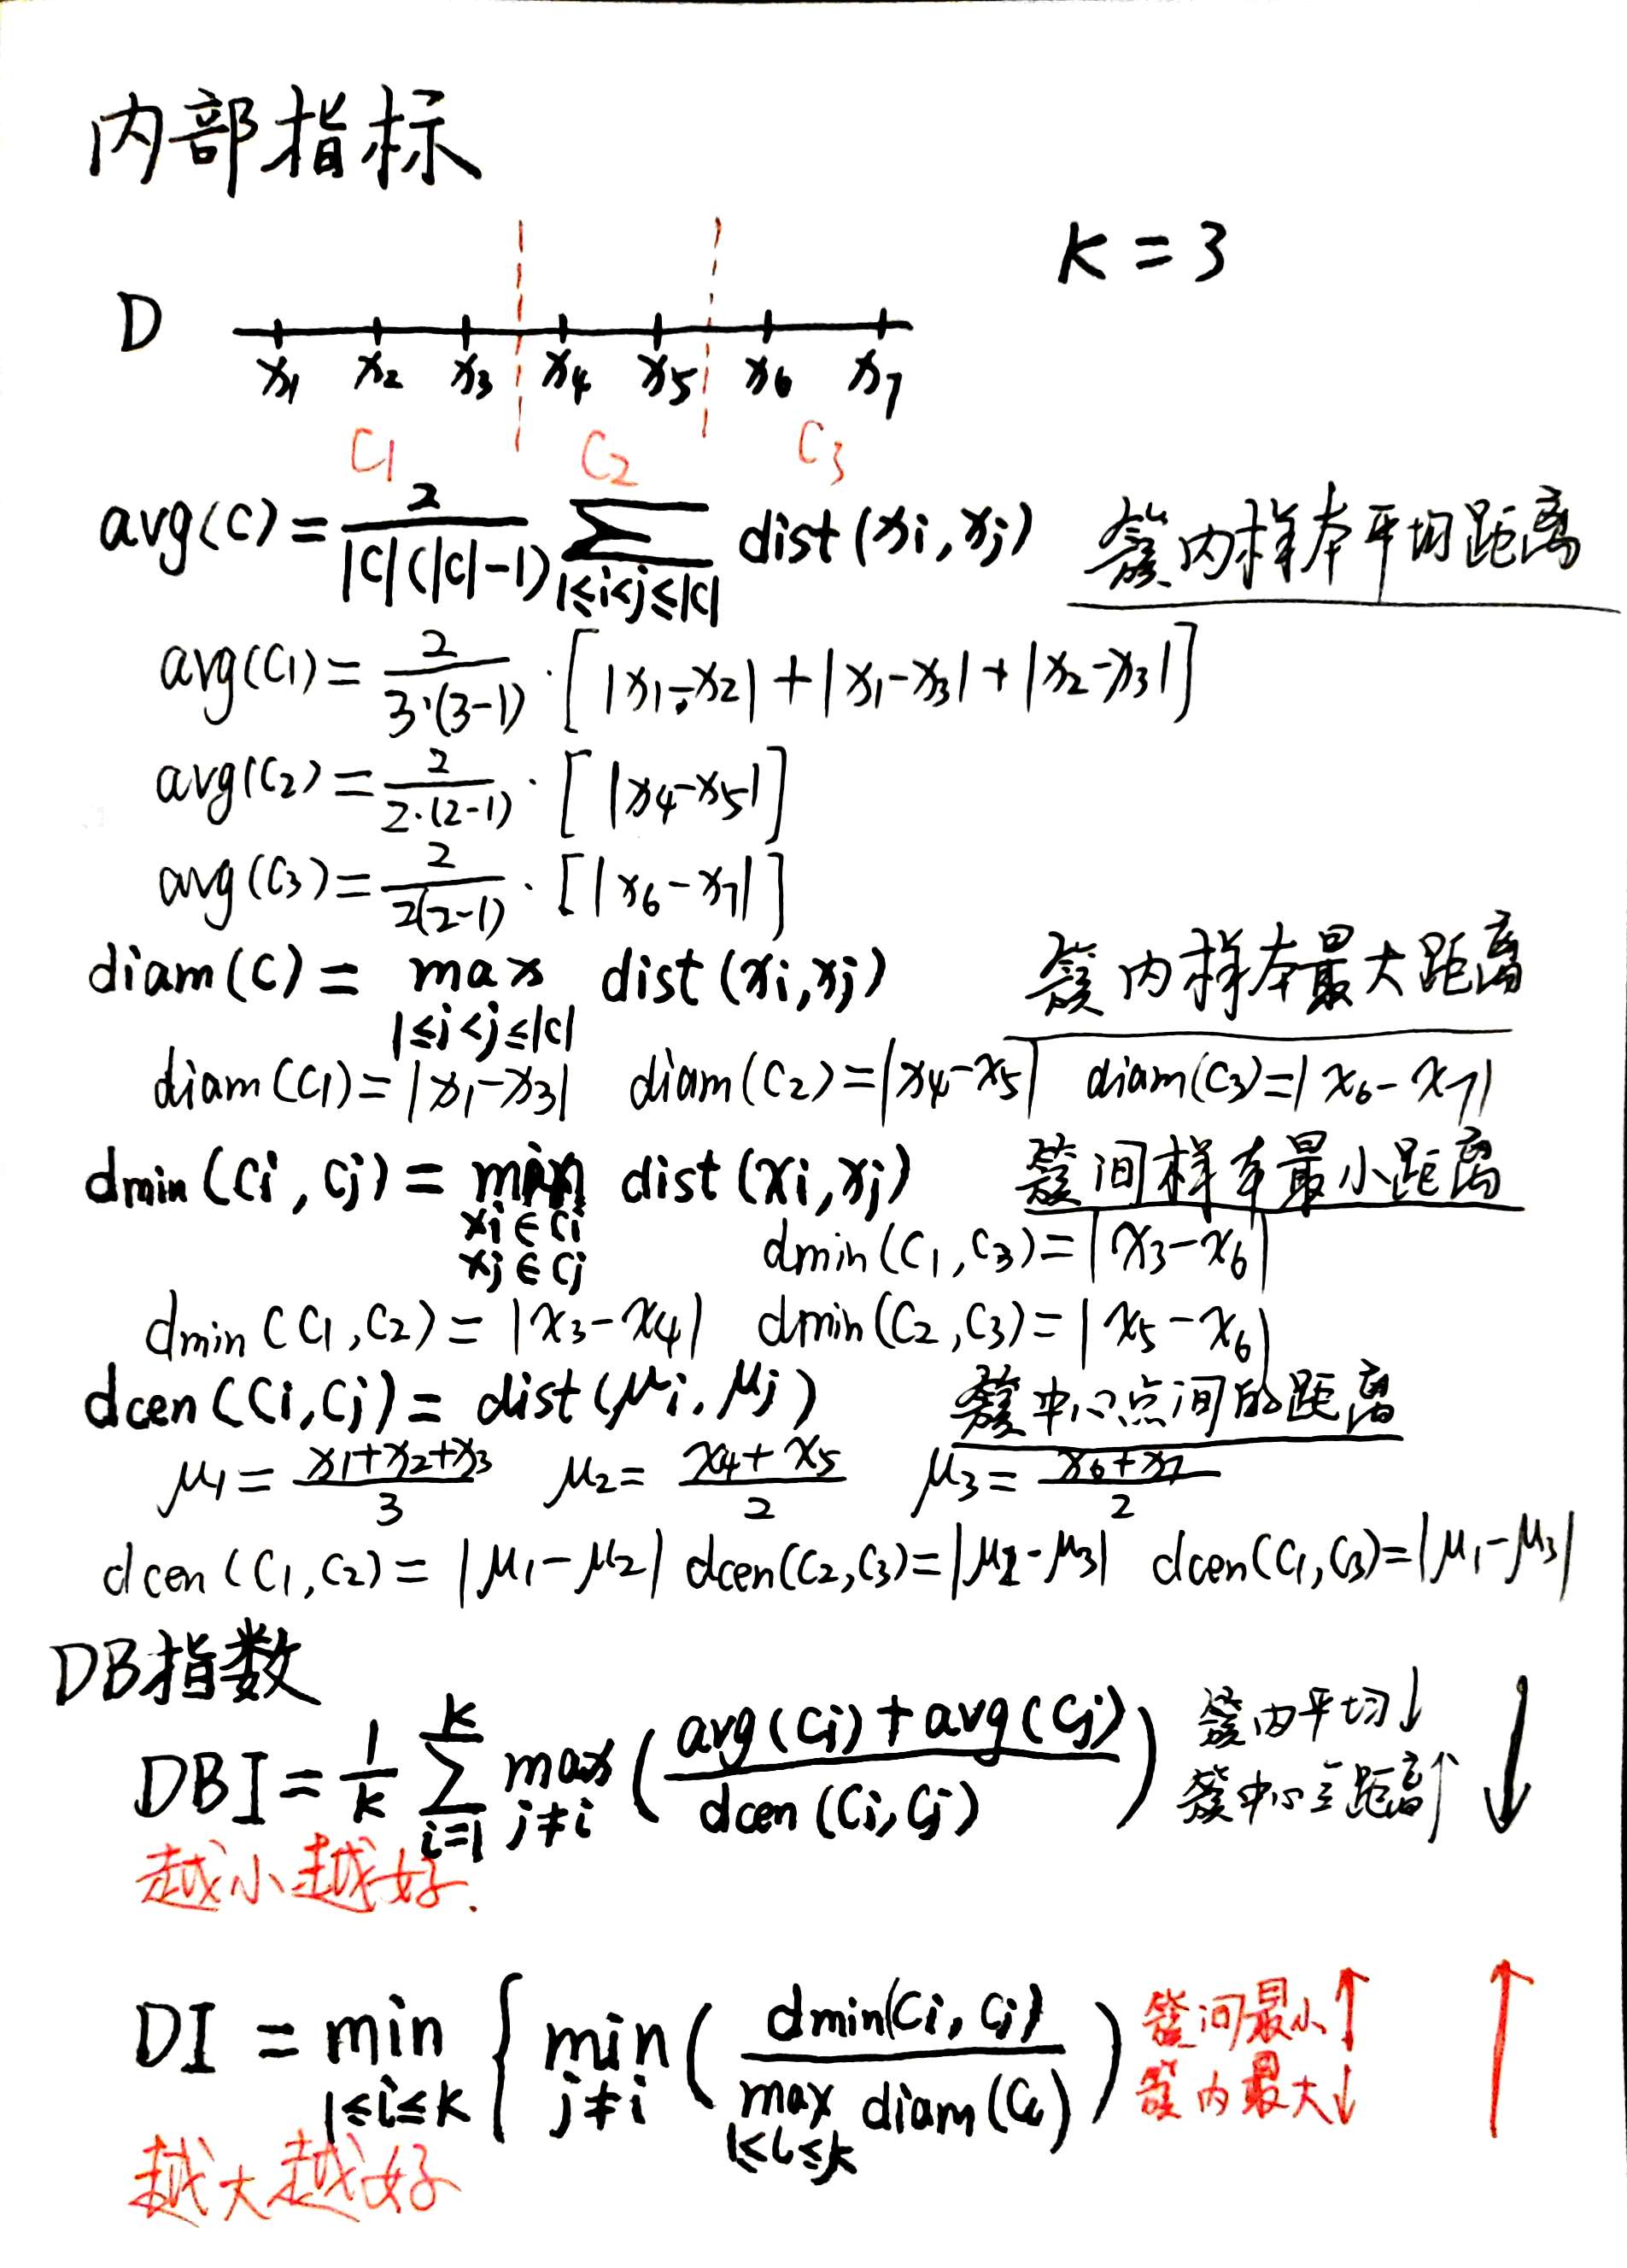 内部指标
K = 3
D
x1 x2 x3 x4 x5 x6 x7
C1 C2 C3
avg(C) = 2/(|C|(|C|-1)) Σ_{1≤i<j≤|C|} dist(xi,xj) 簇内样本平均距离
avg(C1) = 2/(3·(3-1)) · [|x1-x2| + |x1-x3| + |x2-x3|]
avg(C2) = 2/(2·(2-1)) · [|x4-x5|]
avg(C3) = 2/(2(2-1)) · [|x6-x7|]
diam(C) = max_{1≤i<j≤|C|} dist(xi,xj) 簇内样本最大距离
diam(C1) = |x1-x3| diam(C2) = |x4-x5| diam(C3) = |x6-x7|
dmin(Ci,Cj) = min_{xi∈Ci xj∈Cj} dist(xi,xj) 簇间样本最小距离
dmin(C1,C3) = |x3-x6|
dmin(C1,C2) = |x3-x4| dmin(C2,C3) = |x5-x6|
dcen(Ci,Cj) = dist(μi,μj) 簇中心点间的距离
μ1 = (x1+x2+x3)/3 μ2 = (x4+x5)/2 μ3 = (x6+x7)/2
dcen(C1,C2) = |μ1-μ2| dcen(C2,C3) = |μ2-μ3| dcen(C1,C3) = |μ1-μ3|
DB指数
DBI = 1/k Σ_{i=1}^{k} max_{j≠i} ((avg(Ci)+avg(Cj))/dcen(Ci,Cj)) 簇内平均↓ ↓
簇中心距离↑
越小越好.
DI = min_{1≤i≤k} { min_{j≠i} (dmin(Ci,Cj)/(max_{1≤l≤k} diam(Cl))) 簇间最小↑ ↑
簇内最大↓
越大越好